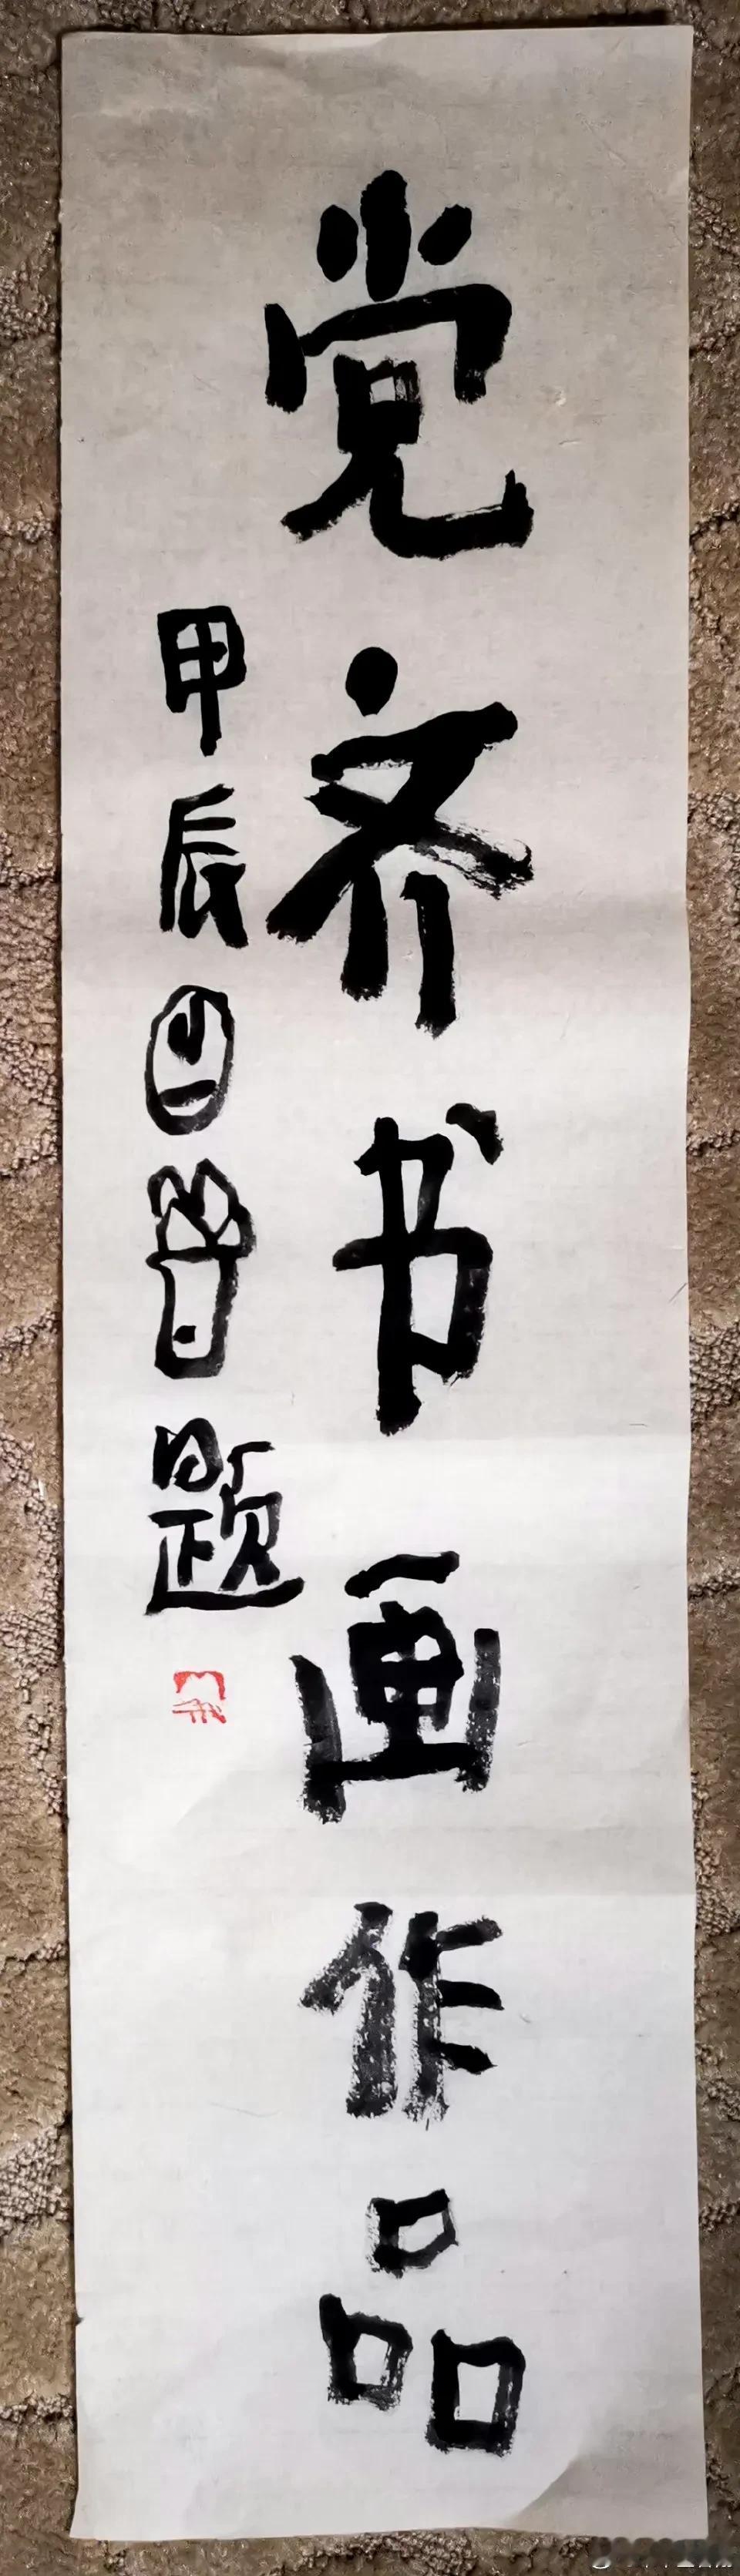 党齐书画作品
甲辰 曾题